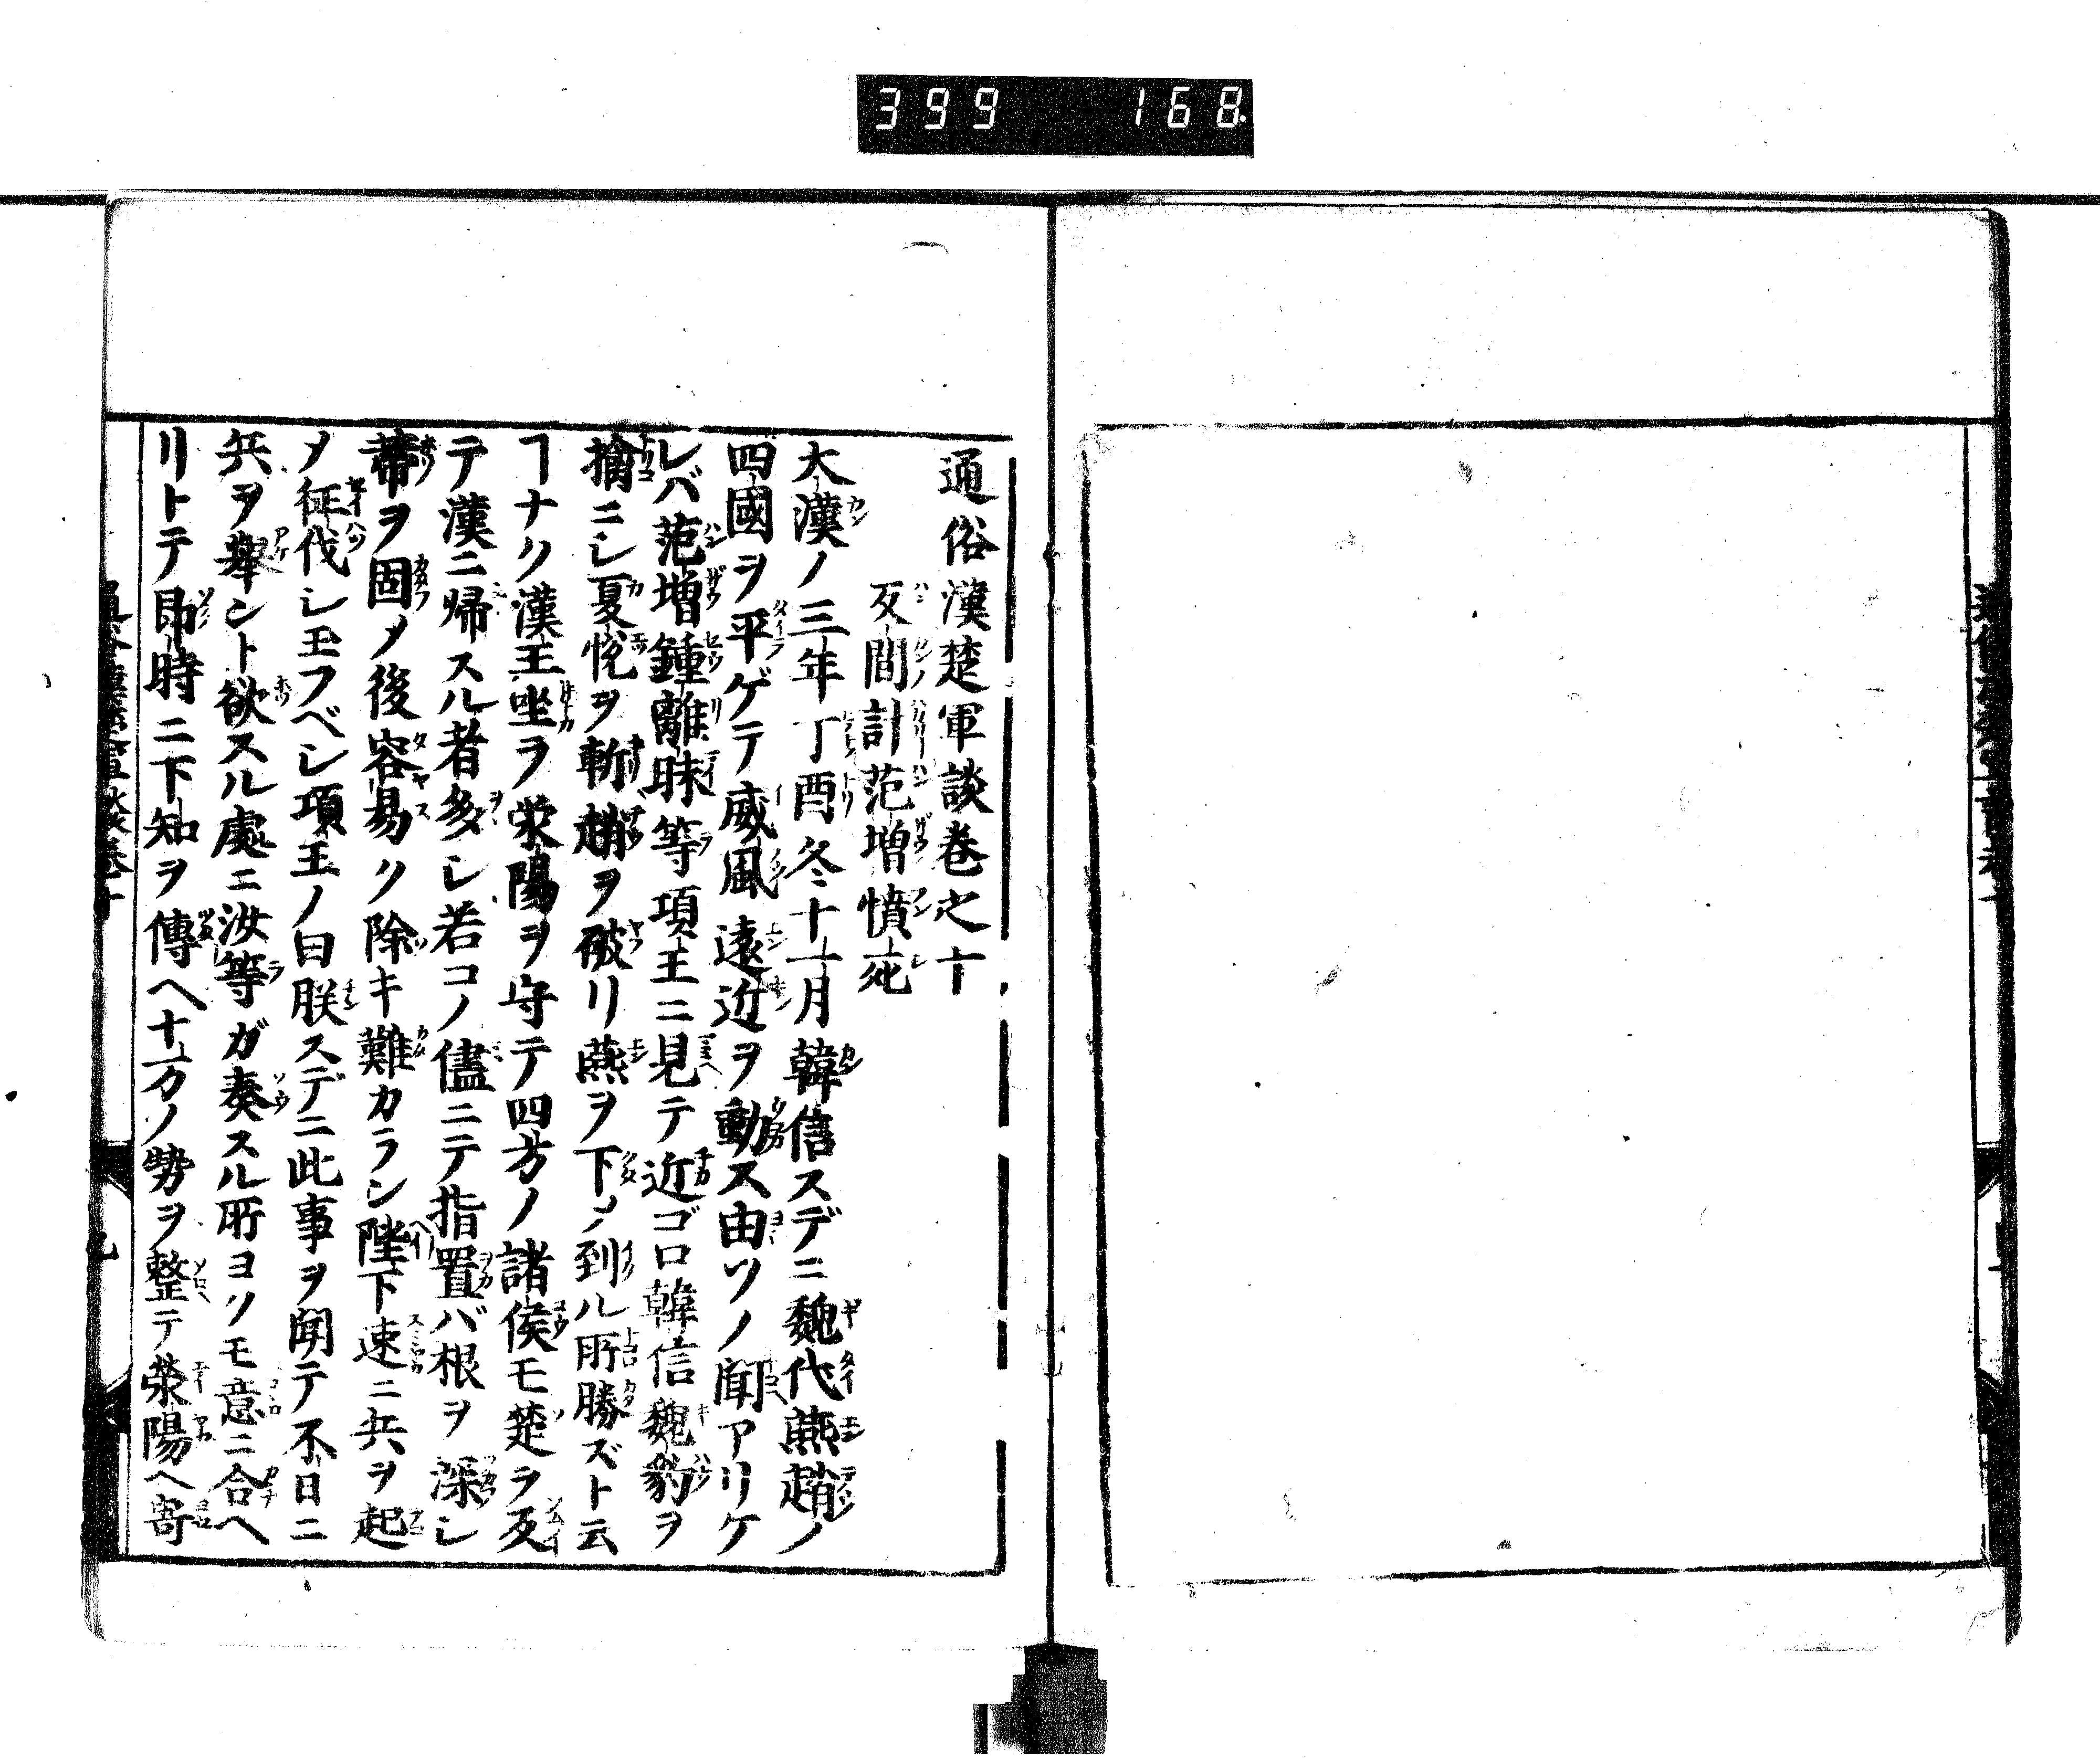 399 168
通俗漢楚軍談巻之十
反間計范増憤死
大漢ノ三年丁酉冬十一月韓信スデニ魏代燕趙ノ
四國ヲ平ゲテ威風遠近ヲ動ス由ソノ聞アリケ
レバ范増鍾離昧等項王ニ見テ近ゴロ韓信魏豹ヲ
擒ニシ夏悦ヲ斬趙ヲ破リ燕ヲ下シ到ル所勝ズト云
ヿナク漢王坐ラ滎陽ヲ守テ四方ノ諸侯モ楚ヲ反
テ漢ニ帰スル者多シ若コノ儘ニテ指置バ根ヲ深シ
蔕ヲ固メ後容易ク除キ難カラン陛下速ニ兵ヲ起
メ征伐シ玉フベシ項王ノ曰朕スデニ此事ヲ聞テ不日ニ
兵ヲ舉ント欲スル處ニ汝等ガ奏スル所ヨリモ意ニ合ヘ
リトテ即時ニ下知ヲ傳ヘ十万ノ勢ヲ整テ滎陽ヘ寄